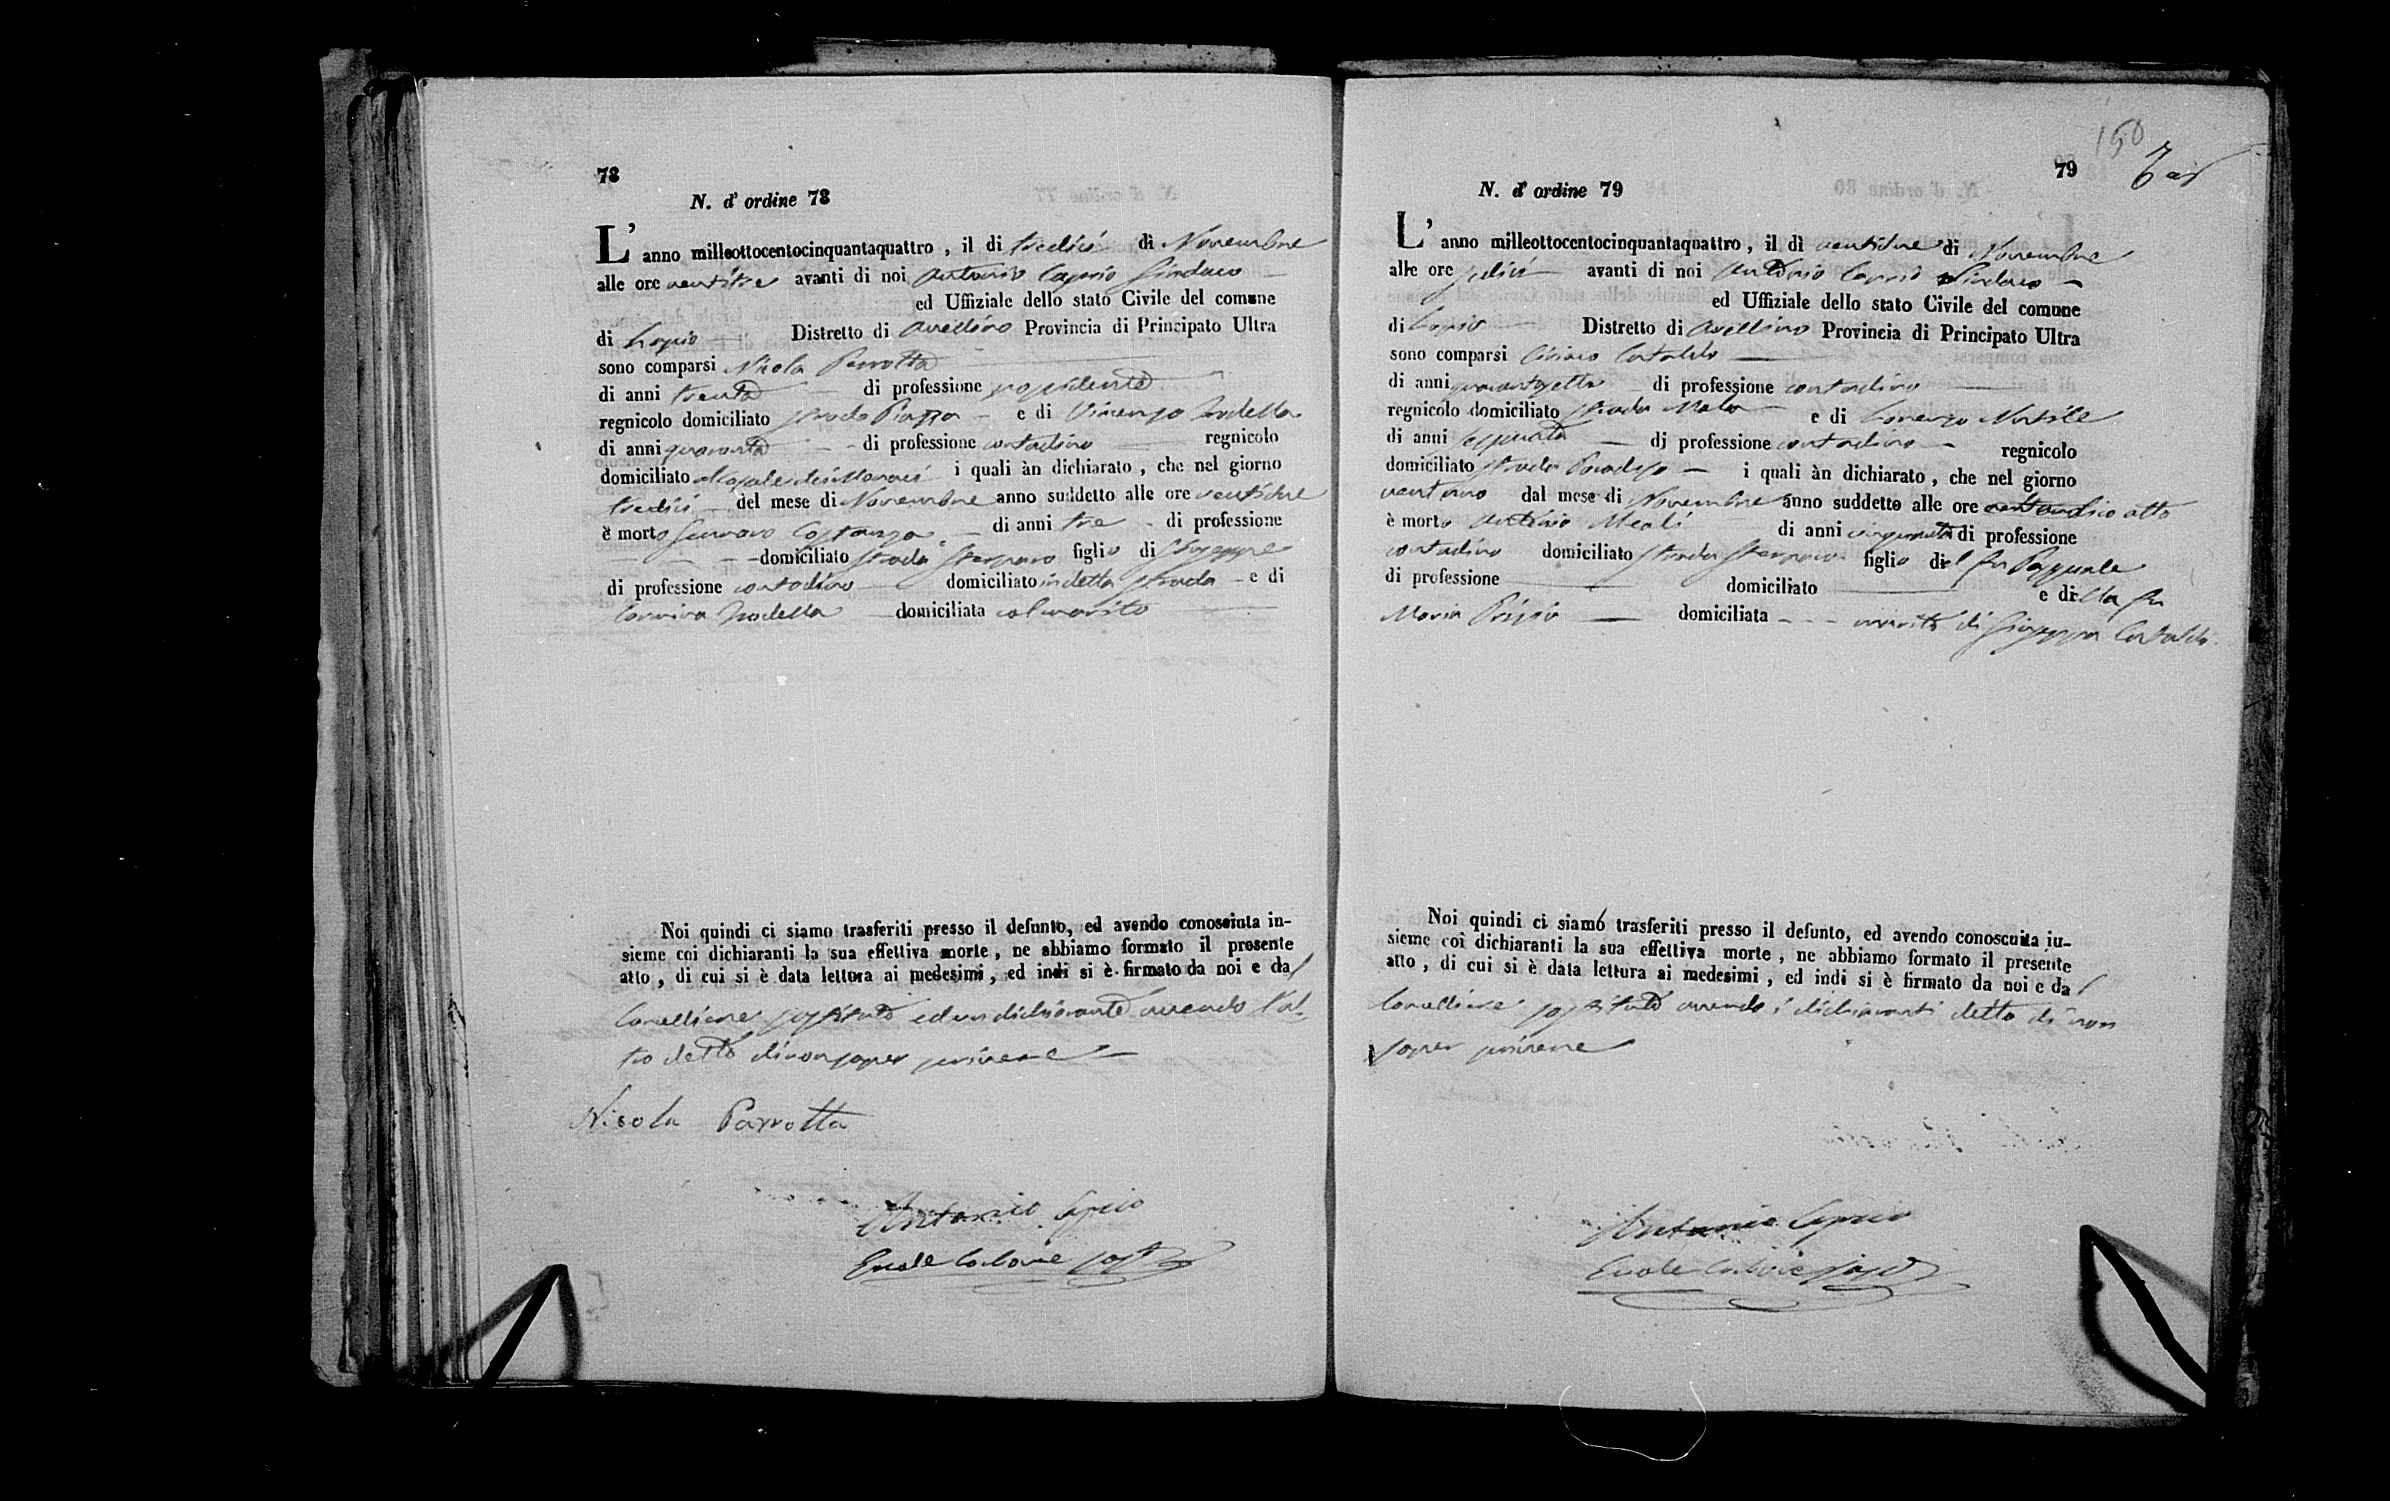 78
N. d' ordine 78
L' anno milleottocentocinquantaquattro , il di tredici di Novembre
alle ore ventitre avanti di noi Antonio Caprio Sindaco
ed Uffiziale dello stato Civile del comune
di Lapio Distretto di Avellino Provincia di Principato Ultra
sono comparsi Nicola Parrotta
di anni trenta di professione
regnicolo domiciliato strada Piazza e di Vincenzo
di anni quaranta di professione contadino regnicolo
domiciliato i quali àn dichiarato , che nel giorno
tredici del mese di Novembre anno suddetto alle ore ventidue
è morto Gennaro Costanza di anni tre di professione
domiciliato strada figlio di Giuseppe
di professione contadino domiciliato in detta strada e di
Carmina domiciliata col marito
Noi quindi ci siamo trasferiti presso il defunto, ed avendo conosciuta in-
sieme coi dichiaranti la sua effettiva morte , ne abbiamo formato il presente
atto , di cui si è data lettura ai medesimi , ed indi si è firmato da noi e dal
Cancelliere sostituto ed un dichiarante avendo l'al-
tro detto di non saper scrivere
Nicola Parrotta
Antonio Caprio
79
150
N. d' ordine 79
L' anno milleottocentocinquantaquattro , il di ventidue di Novembre
alle ore sedici avanti di noi Antonio Caprio Sindaco
ed Uffiziale dello stato Civile del comune
di Lapio Distretto di Avellino Provincia di Principato Ultra
sono comparsi Ciriaco Cataldo
di anni quarantasette di professione contadino
regnicolo domiciliato strada e di Lorenzo
di anni sessanta di professione contadino regnicolo
domiciliato strada i quali àn dichiarato , che nel giorno
ventuno dal mese di Novembre anno suddetto alle ore otto
è morto Antonio Meoli di anni cinquanta di professione
contadino domiciliato strada figlio del fu Pasquale
di professione domiciliato e della fu
Maria domiciliata marito di Giuseppa Cataldo
Noi quindi ci siamo trasferiti presso il defunto, ed avendo conoscuita in-
sieme coi dichiaranti la sua effettiva morte , ne abbiamo formato il presente
atto , di cui si è data lettura ai medesimi , ed indi si è firmato da noi e dal
Cancelliere sostituto avendo i dichiaranti detto di non
saper scrivere
Antonio Caprio